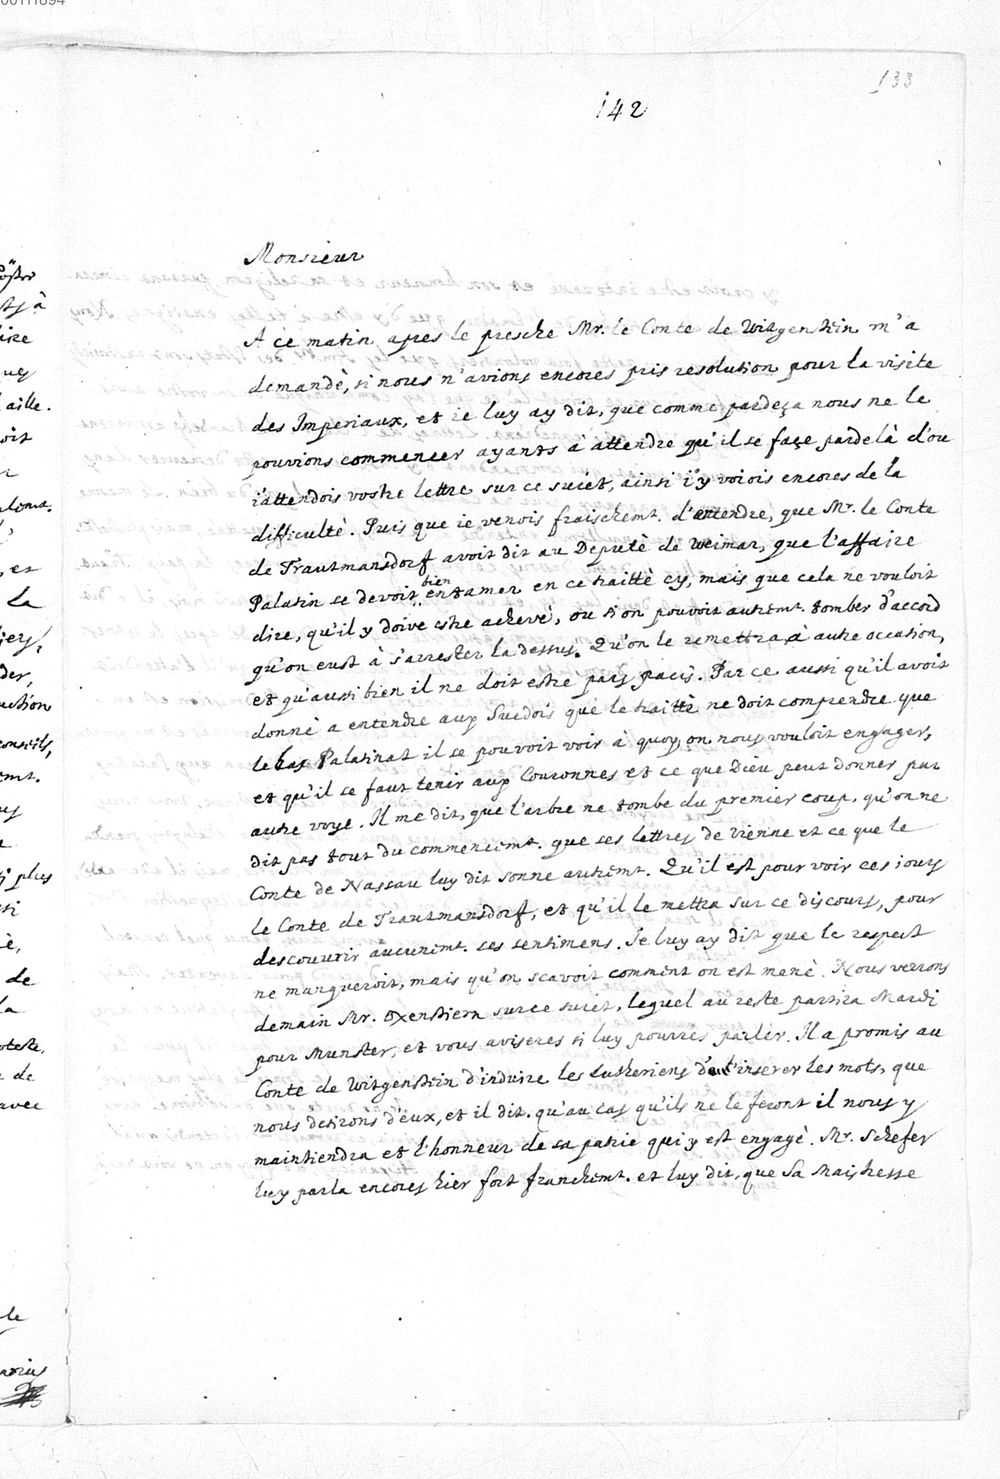 00111894
133
142
Monsieur
A ce matin apres le presche Mr. le Conte de Witgenstein m'a
demandè, si nous n'avions encores pris resolution pour la visite
des Imperiaux, et ie luy ay dit, que comme pardeça nous ne le
pouvions commencer ayants à attendre qu'il se façe pardelà d'ou
i'attendois vostre lettre sur ce suiet, ainsi i'y voiois encores de la
difficultè. Puis que ie venois fraischemt. d'entendre, que Mr. le Conte
de Trautmansdorf avoit dit au Deputè de Weimar, que l'affaire
Palatin se devoit bien entamer en ce traittè cy, mais que cela ne vouloit
dire, qu'il y doive estre achevè, ou si on pouvoit autremt. tomber d'accord
qu'on eust à s'arrester la dessus. Qu'on le remettra à autre occasion,
et qu'aussi bien il ne doit estre pars pacis. Par ce aussi qu'il avoit
donnè a entendre aux Suedois que le traittè ne doit comprendre que
le bas Palatinat il se pouvoit voir à quoy on nous vouloit engager,
et qu'il se faut tenir aux Couronnes et ce que Dieu peut donner par
autre voye. Il me dit, que l'arbre ne tombe du premier coup, qu'on ne
dit pas tout du commencemt. que ses lettres de Vienne et ce que le
Conte de Nassau luy dit sonne autremt. Qu'il est pour voir ces iours
le Conte de Trautmansdorf, et qu'il le mettra sur ce discours, pour
descouvrir aucunemt. ses sentimens. Ie luy ay dit que le respect
ne manqueroit, mais qu'on scavoit comment on est menè. Nous verrons
demain Mr. Oxenstiern sur ce suiet, lequel au reste partira Mardi
pour Munster, et vous aviseres si luy pourrès parler. Il a promis au
Conte de Witgenstein d'induire les Lutheriens d'inserer les mots, que
nous desirons d'eux, et il dit. qu'au cas qu'ils ne le feront il nous y
maintiendra et l'honneur de sa patrie qui y est engagè. Mr. Schefer
luy parla encores hier fort franchemt. et luy dit, que Sa Maistresse